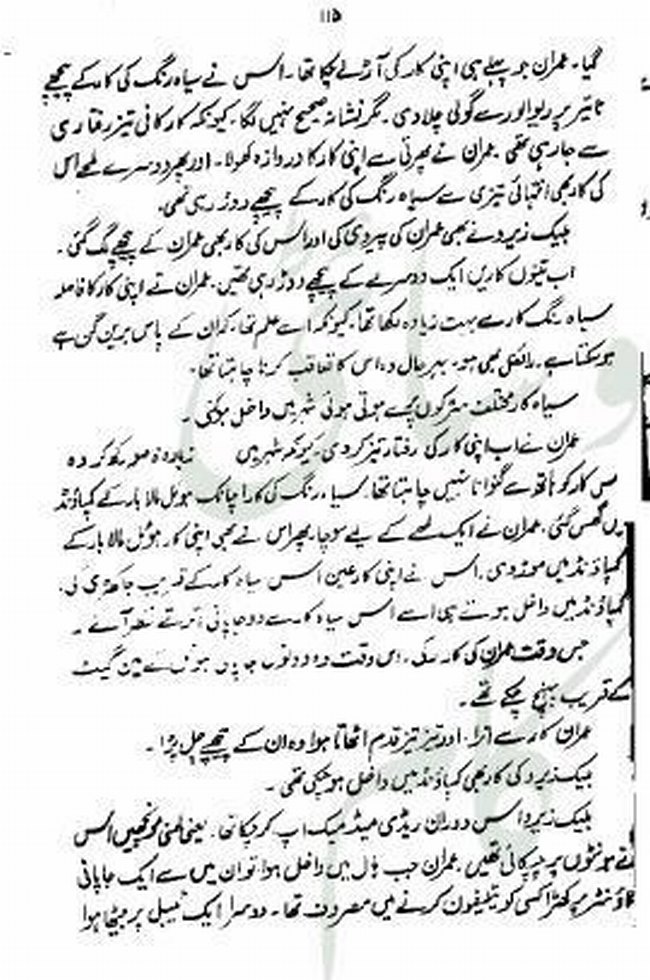 ۱۱۵
گیا۔ عمران جو پہلے ہی اپنی کار کی آڑ لے چکا تھا۔ اس نے سیاہ رنگ کی کار کے پیچھے
ٹائیر پر ریوالور سے گولی چلا دی۔ مگر نشانہ صحیح نہیں لگا۔ کیونکہ کار کافی تیز رفتاری
سے جا رہی تھی۔ عمران نے پھرتی سے اپنی کار کا دروازہ کھولا۔ اور پھر دوسرے لمحے اس
کی کار بھی انتہائی تیزی سے سیاہ رنگ کی کار کے پیچھے دوڑ رہی تھی۔
بلیک زیرو نے بھی عمران کی پیروی کی اور اس کی کار بھی عمران کے پیچھے لگ گئی۔
اب تینوں کاریں ایک دوسرے کے پیچھے دوڑ رہی تھیں۔ عمران نے اپنی کار کا فاصلہ
سیاہ رنگ کار سے بہت زیادہ رکھا تھا۔ کیونکہ اسے علم تھا۔ کہ ان کے پاس برین گن ہے
ہو سکتا ہے۔ رائفل بھی ہو۔ بہر حال وہ اس کا تعاقب کرنا چاہتا تھا۔
سیاہ کار مختلف سڑکوں پر سے ہوتی ہوئی شہر میں داخل ہو گئی۔
عمران نے اب اپنی کار کی رفتار تیز کر دی۔ کیونکہ شہر میں زیادہ فاصلہ رکھ کر وہ
اس کار کو ہاتھ سے گنوانا نہیں چاہتا تھا۔ سیاہ رنگ کی کار اچانک ہوٹل مالابار کے کمپاؤنڈ
میں گھس گئی۔ عمران نے ایک لمحے کے لیے سوچا پھر اس نے بھی اپنی کار ہوٹل مالابار کے
کمپاؤنڈ میں موڑ دی۔ اس نے اپنی کار عین اس سیاہ کار کے قریب جا کھڑی کی۔
کمپاؤنڈ میں داخل ہوتے ہی اسے اس سیاہ کار سے دو جاپانی اترتے نظر آئے۔
جس وقت عمران کی کار رکی۔ اس وقت وہ دونوں جاپانی ہوٹل کے مین گیٹ
کے قریب پہنچ چکے تھے۔
عمران کار سے اترا۔ اور تیز تیز قدم اٹھاتا ہوا وہ ان کے پیچھے چل پڑا۔
بلیک زیرو کی کار بھی کمپاؤنڈ میں داخل ہو چکی تھی۔
بلیک زیرو اس دوران ریڈی میڈ میک اپ کر چکا تھا۔ یعنی مونچھیں اس
نے ہونٹوں پر چپکائی تھیں۔ عمران جب ہال میں داخل ہوا تو ان میں سے ایک جاپانی
کاؤنٹر پر کھڑا کسی کو ٹیلیفون کرنے میں مصروف تھا۔ دوسرا ایک ٹیبل پر بیٹھا ہوا